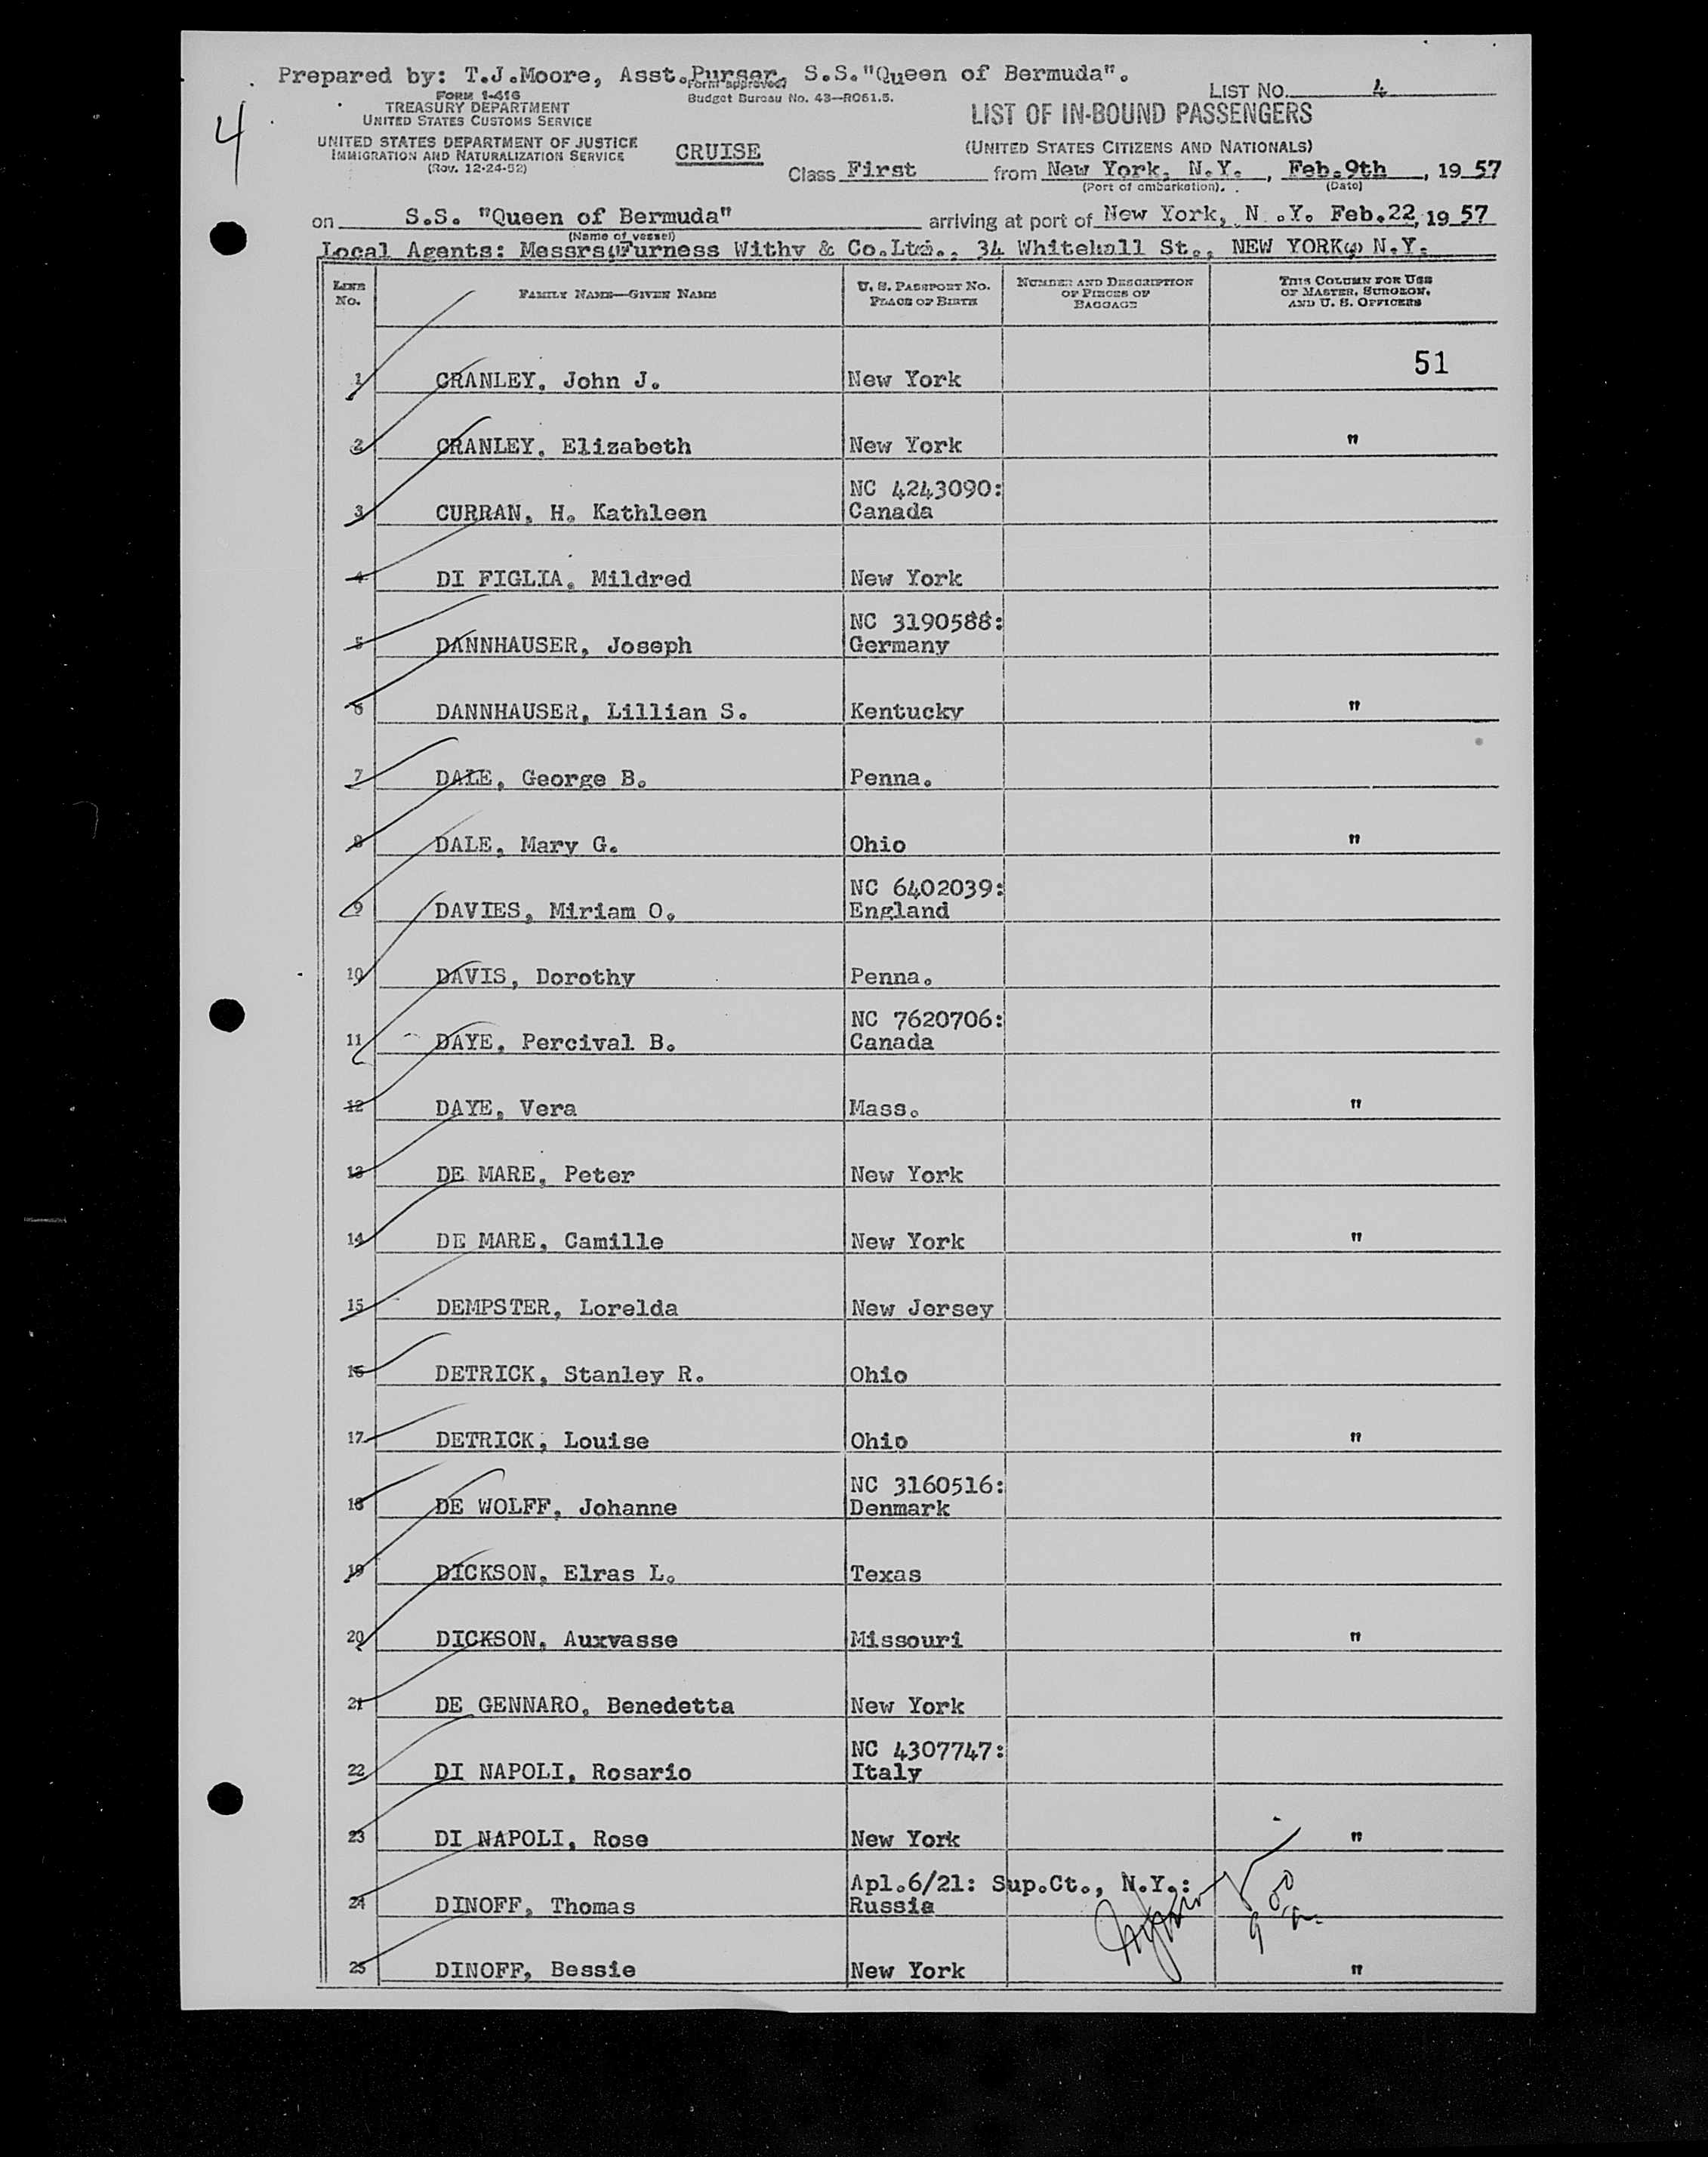 Prepared by: T.J.Moore, Asst.Purser, S.S."Queen of Bermuda".
Form approved
FORM I-416
Budget Bureau No. 43—R051.5.
LIST NO. 4
4
TREASURY DEPARTMENT
UNITED STATES CUSTOMS SERVICE
LIST OF IN-BOUND PASSENGERS
UNITED STATES DEPARTMENT OF JUSTICE
IMMIGRATION AND NATURALIZATION SERVICE
(Rev. 12-24-52)
CRUISE
(UNITED STATES CITIZENS AND NATIONALS)
Class First from New York, N.Y., Feb.9th, 19 57
(Port of embarkation) (Date)
on S.S. "Queen of Bermuda" arriving at port of New York, N.Y. Feb.22, 19 57
(Name of vessel)
Local Agents: Messrs Furness Withy & Co.Ltd., 34 Whitehall St., NEW YORK, N.Y.
LINE No. FAMILY NAME—GIVEN NAME U. S. PASSPORT NO. PLACE OF BIRTH NUMBER AND DESCRIPTION OF PIECES OF BAGGAGE THIS COLUMN FOR USE OF MASTER, SURGEON, AND U. S. OFFICERS
51
1 CRANLEY, John J. New York
2 CRANLEY, Elizabeth New York "
NC 4243090:
3 CURRAN, H. Kathleen Canada
4 DI FIGLIA, Mildred New York
NC 3190588:
5 DANNHAUSER, Joseph Germany
6 DANNHAUSER, Lillian S. Kentucky "
7 DALE, George B. Penna.
8 DALE, Mary G. Ohio "
NC 6402039:
9 DAVIES, Miriam O. England
10 DAVIS, Dorothy Penna.
NC 7620706:
11 DAYE, Percival B. Canada
12 DAYE, Vera Mass. "
13 DE MARE, Peter New York
14 DE MARE, Camille New York "
15 DEMPSTER, Lorelda New Jersey
16 DETRICK, Stanley R. Ohio
17 DETRICK, Louise Ohio "
NC 3160516:
18 DE WOLFF, Johanne Denmark
19 DICKSON, Elras L. Texas
20 DICKSON, Auxvasse Missouri "
21 DE GENNARO, Benedetta New York
NC 4307747:
22 DI NAPOLI, Rosario Italy
23 DI NAPOLI, Rose New York "
Apl.6/21: Sup.Ct., N.Y.:
24 DINOFF, Thomas Russia
25 DINOFF, Bessie New York "